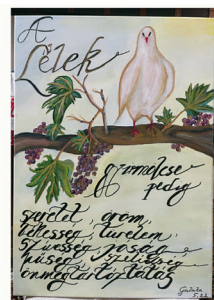 A
Lélek
gyümölcse
pedig
szeretet, öröm,
békesség, türelem,
szívesség, jóság,
hűség, szelídség,
önmegtartóztatás
Galata
5.22